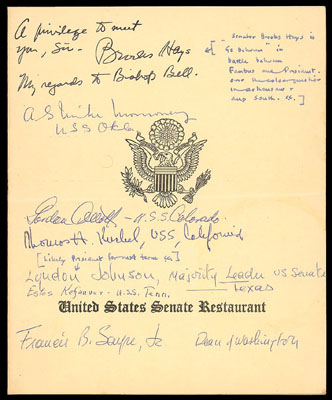 A privilege to meet
you, Sir - Brooks Hays
My regards to Bishop Bell.
[- Senator Brooks Hays is
Go between in
battle between
Faubus and President.
over
and South.
A S Mike Monroney
USS Okla
Gordon Allott - U.S.S. Colorado.
Thomas H. Kuchel, USS, California
[Likely President for next term
Lyndon Johnson, Majority Leader US Senate
Texas
Estes Kefauver - U.S.S. Tenn.
United States Senate Restaurant
Francis B. Sayre, Jr Dean of Washington